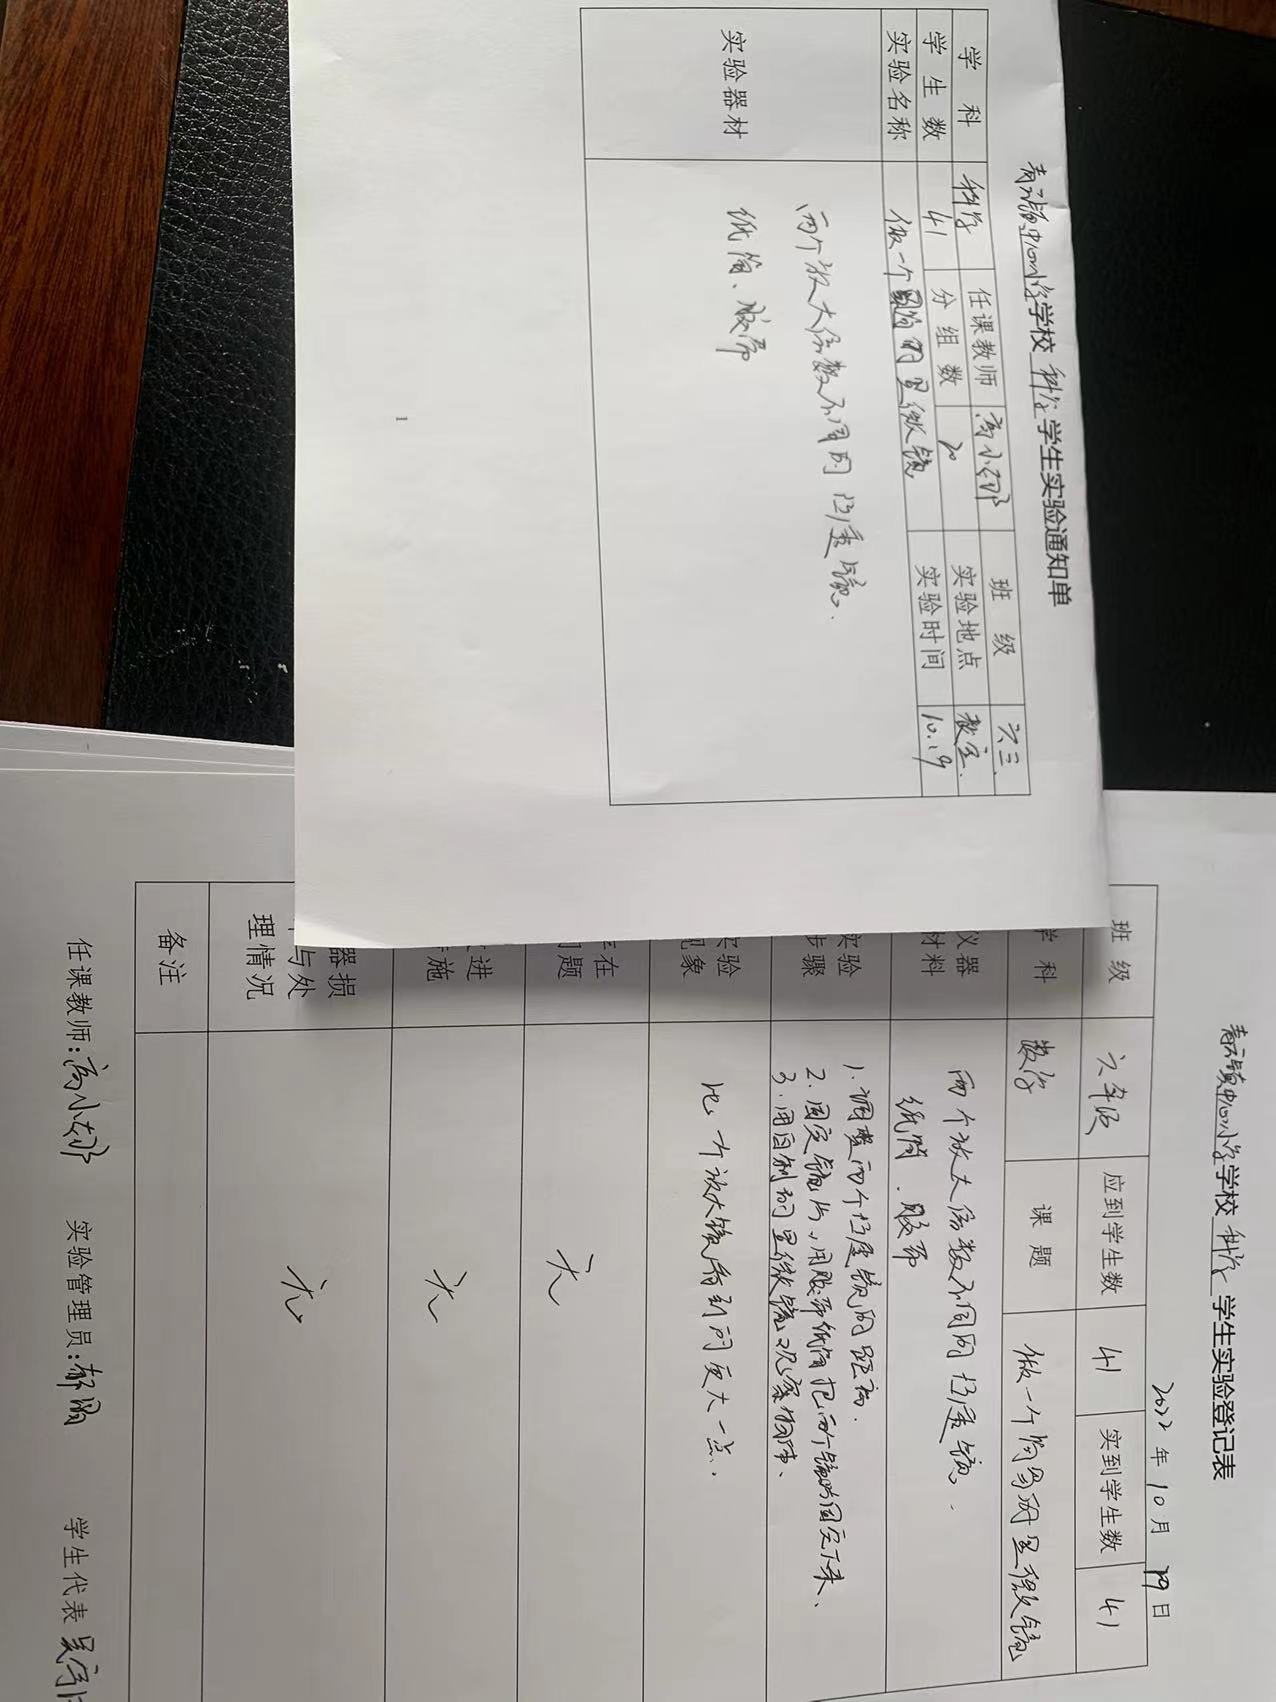 青云镇中心小学学校 科学 学生实验通知单
学 科 科学 任课教师 高小娜 班 级 六三
学 生 数 41 分 组 数 20 实验地点 教室
实验名称 做一个简单的显微镜 实验时间 10.19
实验器材
两个放大倍数不同的凸透镜。
纸筒、胶带
1
青云镇中心小学学校 科学 学生实验登记表
2022 年 10 月 19 日
班 级 六年级 应到学生数 41 实到学生数 41
学 科 数学 课 题 做一个简易的显微镜
仪器
材料
两个放大倍数不同的凸透镜、
纸筒、胶带
实验
步骤
1. 调整两个凸透镜的距离.
2. 固定镜片,用胶带纸筒把两个镜片固定下来、
3. 用自制的显微镜观察物体、
实验
现象
比一个放大镜看到的更大一点、
存在
问题
无
改进
措施
无
器损
与处
理情况
无
备注
任课教师:高小娜 实验管理员:郝 学生代表 吴宇